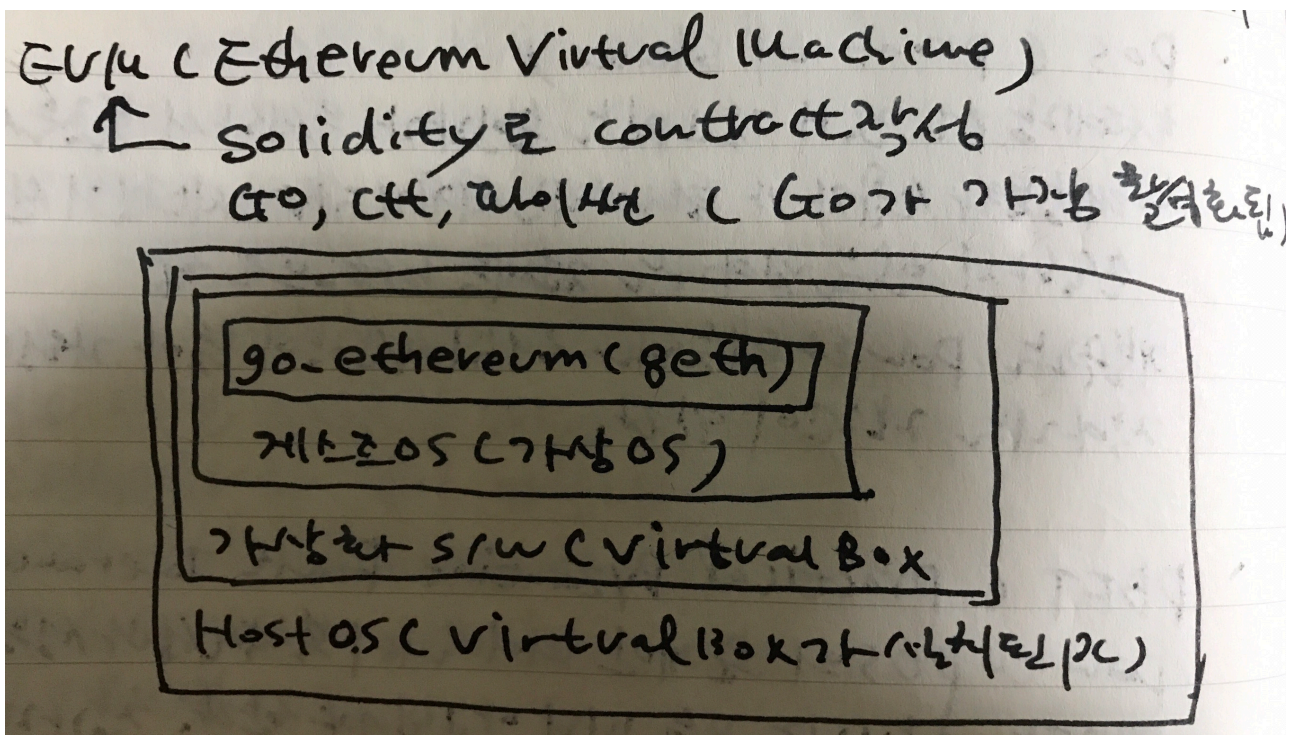 EVM ( Ethereum Virtual Machine )
solidity로 contract작성
GO, C++, 파이썬 ( GO가 가장 활성화됨)
go-ethereum (geth)
게스트OS (가상OS)
가상화 S/W (Virtual Box
Host OS ( VirtualBox가 설치된 PC )